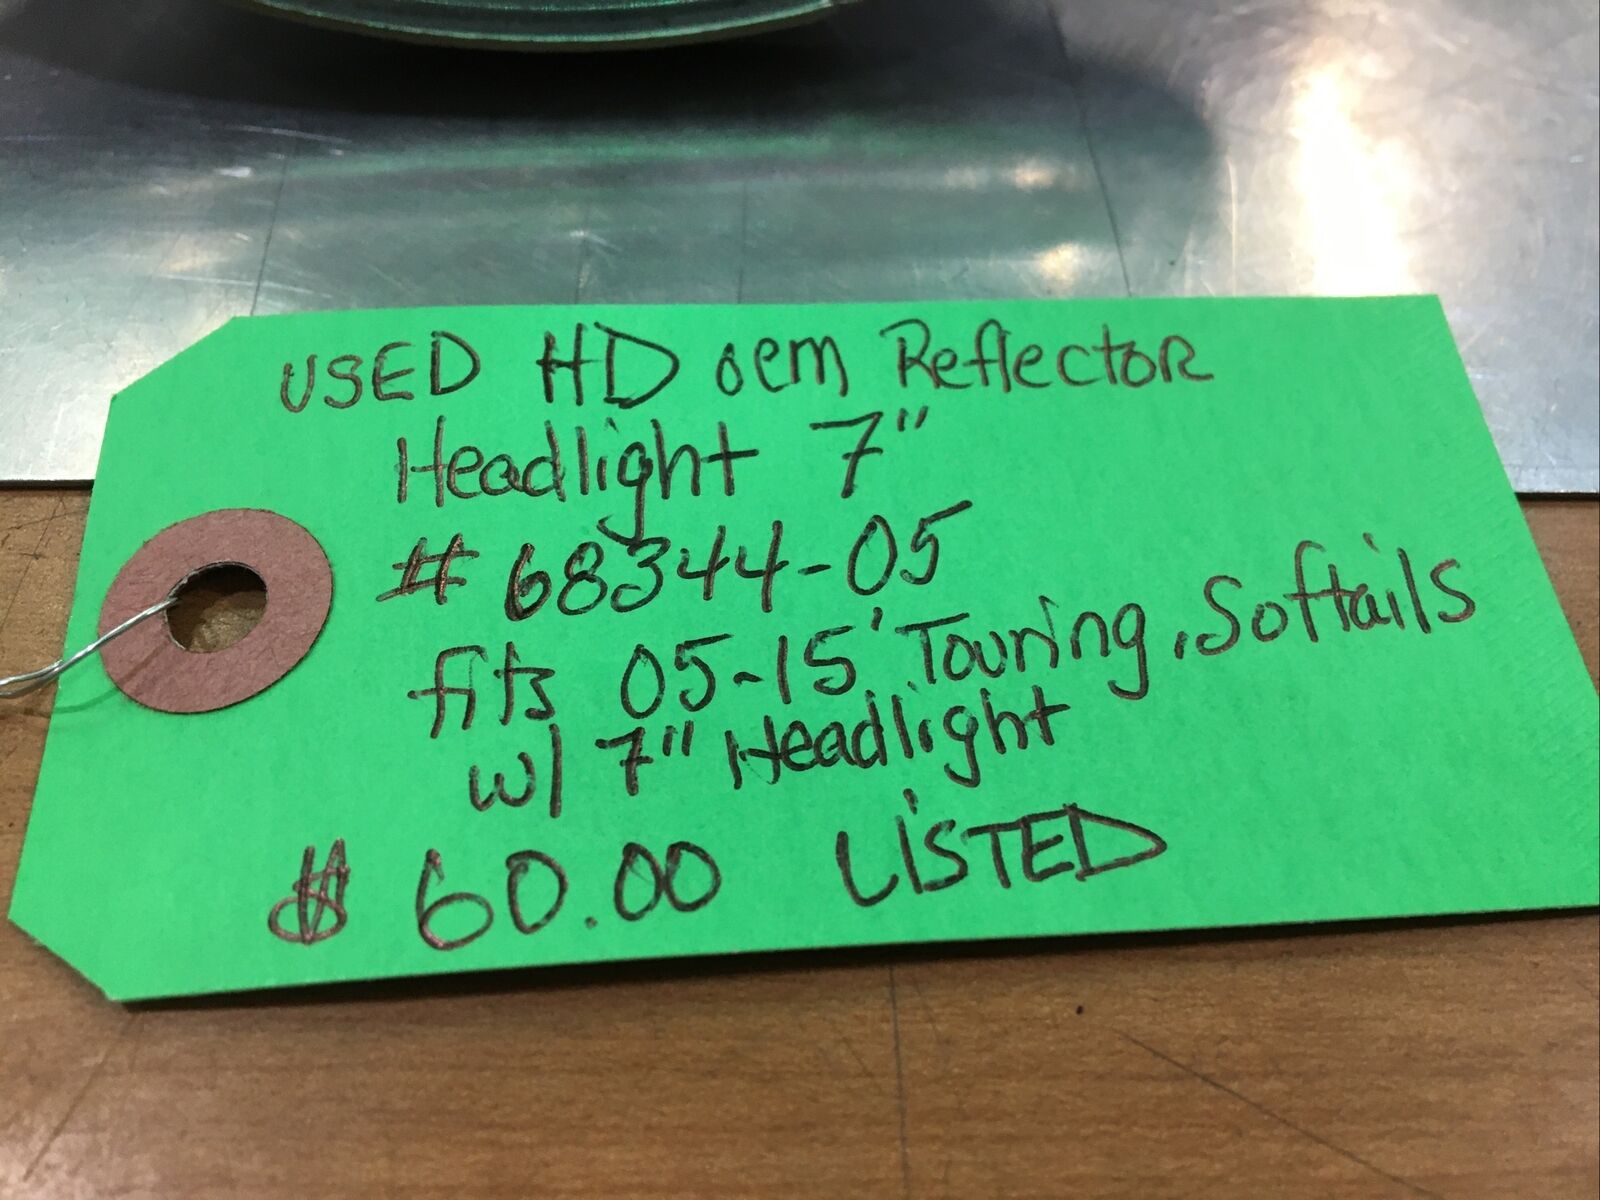 USED HD oem Reflector
Headlight 7"
# 68344-05
fits 05-15' Touring, Softails
w/ 7" Headlight
$ 60.00 LiSTED